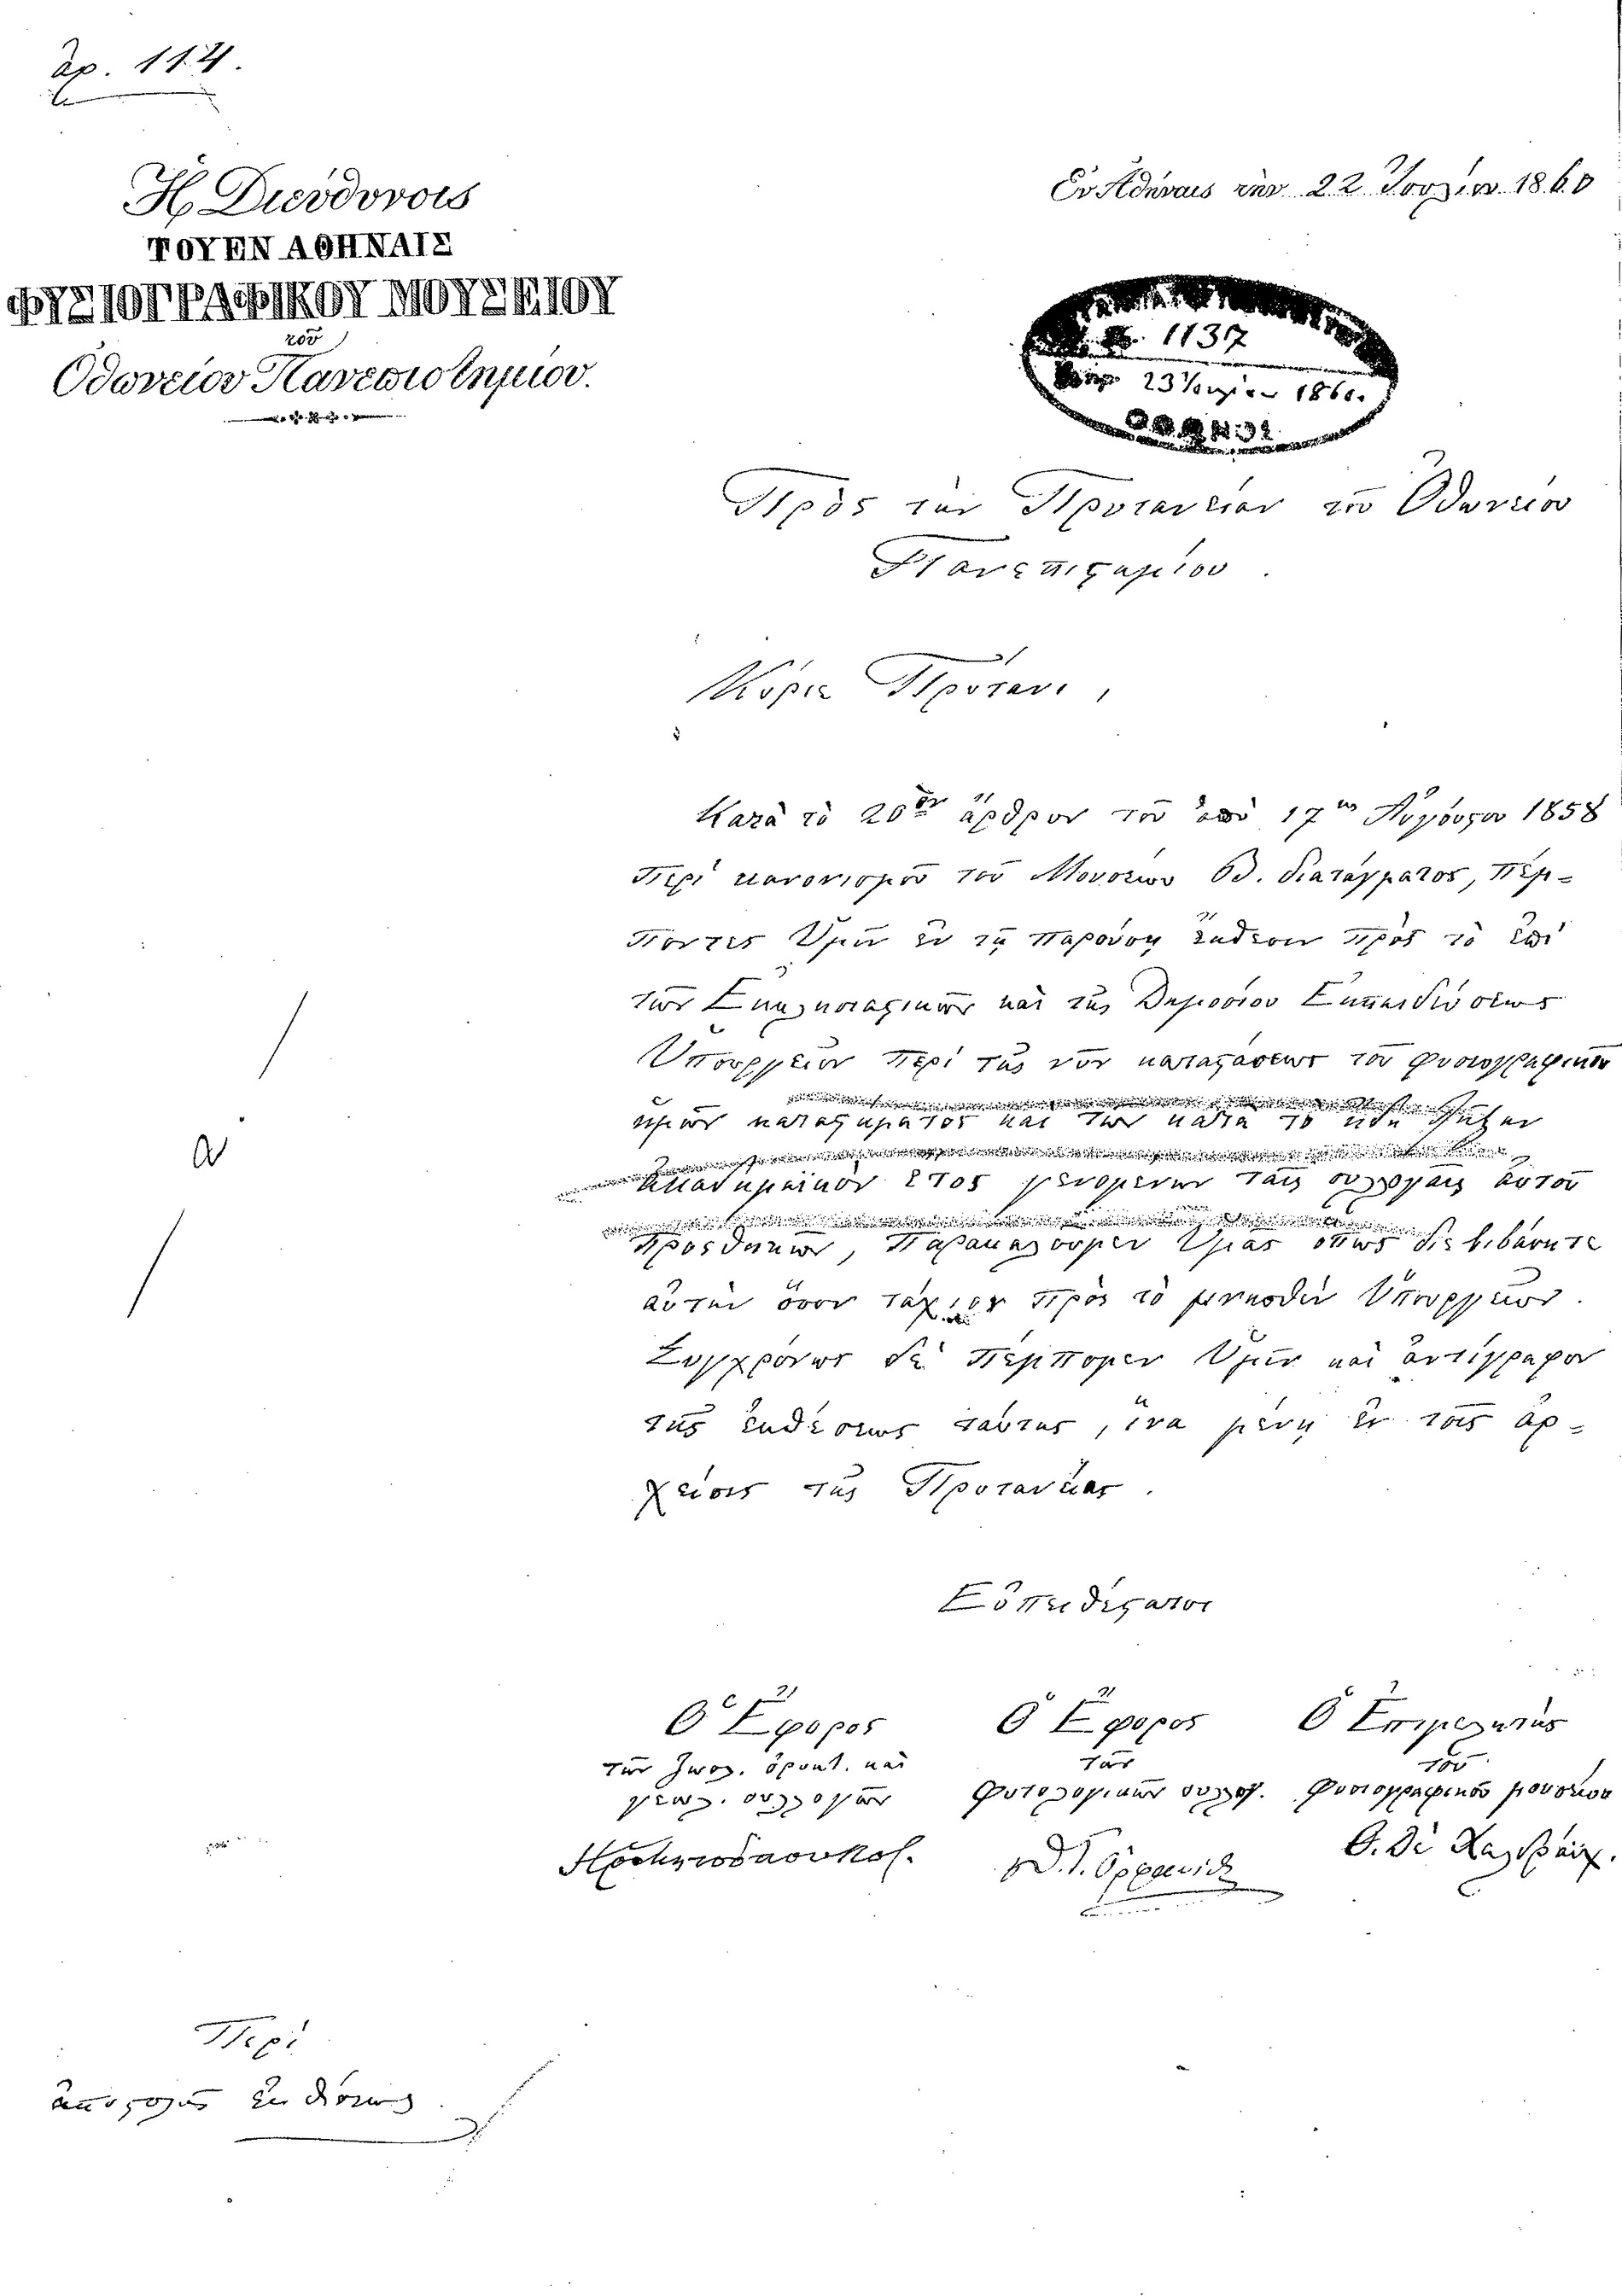 ἀρ. 114.
Ἡ Διεύθυνσις
ΤΟΥ ΕΝ ΑΘΗΝΑΙΣ
ΦΥΣΙΟΓΡΑΦΙΚΟΥ ΜΟΥΣΕΙΟΥ
τοῦ
Ὀθωνείου Πανεπιστημίου.
Ἐν Ἀθήναις τὴν 22 1860
1137
23 1860.
Πρὸς τὴν Πρυτανείαν τοῦ Ὀθωνείου
Πανεπιστημίου.
Κύριε Πρύτανι,
Κατὰ τὸ 20ὸν ἄρθρον τοῦ ἀπὸ 17ης Αὐγούστου 1858
περὶ κανονισμοῦ τοῦ Μουσείου Β. διατάγματος, πέμ-
ποντες Ὑμῖν ἐν τῇ παρούσῃ ἔκθεσιν πρὸς τὸ ἐπὶ
τῶν Ἐκκλησιαστικῶν καὶ τῆς Δημοσίου Ἐκπαιδεύσεως
Ὑπουργεῖον περὶ τῆς νῦν καταστάσεως τοῦ φυσιογραφικοῦ
ἡμῶν καταστήματος καὶ τῶν κατὰ τὸ ἤδη λῆξαν
ἀκαδημαϊκὸν ἔτος γενομένων ταῖς συλλογαῖς αὐτοῦ
προσθηκῶν, παρακαλοῦμεν Ὑμᾶς ὅπως διαβιβάσητε
αὐτὴν ὅσον τάχιον πρὸς τὸ μνησθὲν Ὑπουργεῖον.
Συγχρόνως δὲ πέμπομεν Ὑμῖν καὶ ἀντίγραφον
τῆς ἐκθέσεως ταύτης, ἵνα μένῃ ἐν τοῖς ἀρ-
χείοις τῆς Πρυτανείας.
Εὐπειθέστατοι
Ὁ Ἔφορος Ὁ Ἔφορος Ὁ Ἐπιμελητὴς
τῶν ζωολ. ὀρυκτ. καὶ τῶν τοῦ
γεωλ. συλλογῶν φυτολογικῶν συλλογ. φυσιογραφικοῦ μουσείου
Θ. δὲ Χελδράιχ.
Περὶ
ἀποστολῆς ἐκθέσεως